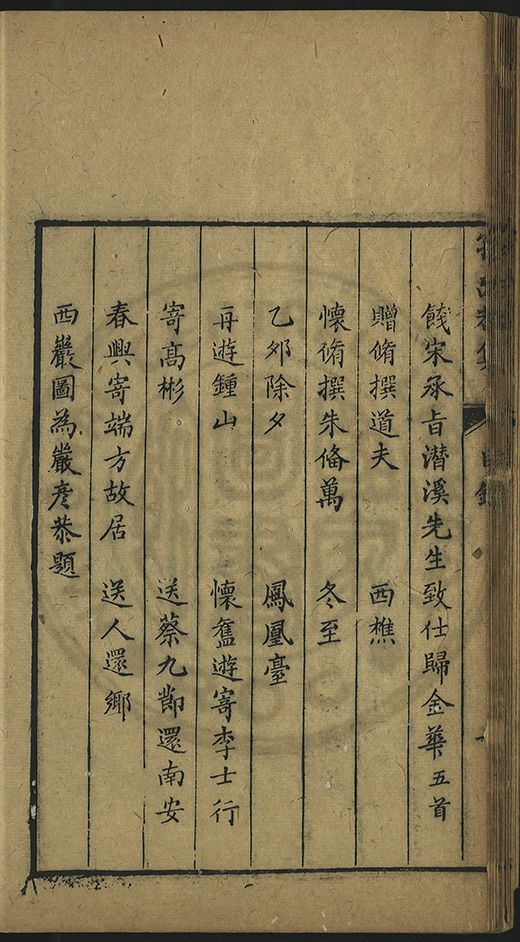 餞宋承旨潛溪先生致仕歸金華五首
贈脩撰道夫 西樵
懷脩撰朱俻萬 冬至
乙夘除夕 鳳凰臺
再遊鍾山 懷舊遊寄李士行
寄高彬 送蔡九節還南安
春興寄端方故居 送人還鄉
西巖圖為嚴彥恭題
目錄